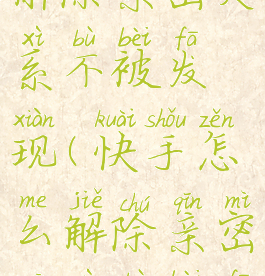 xì bù bèi fā
系不被发
xiàn kuài shǒu zěn
现(快手怎
me jiě chú qīn mì
么解除亲密